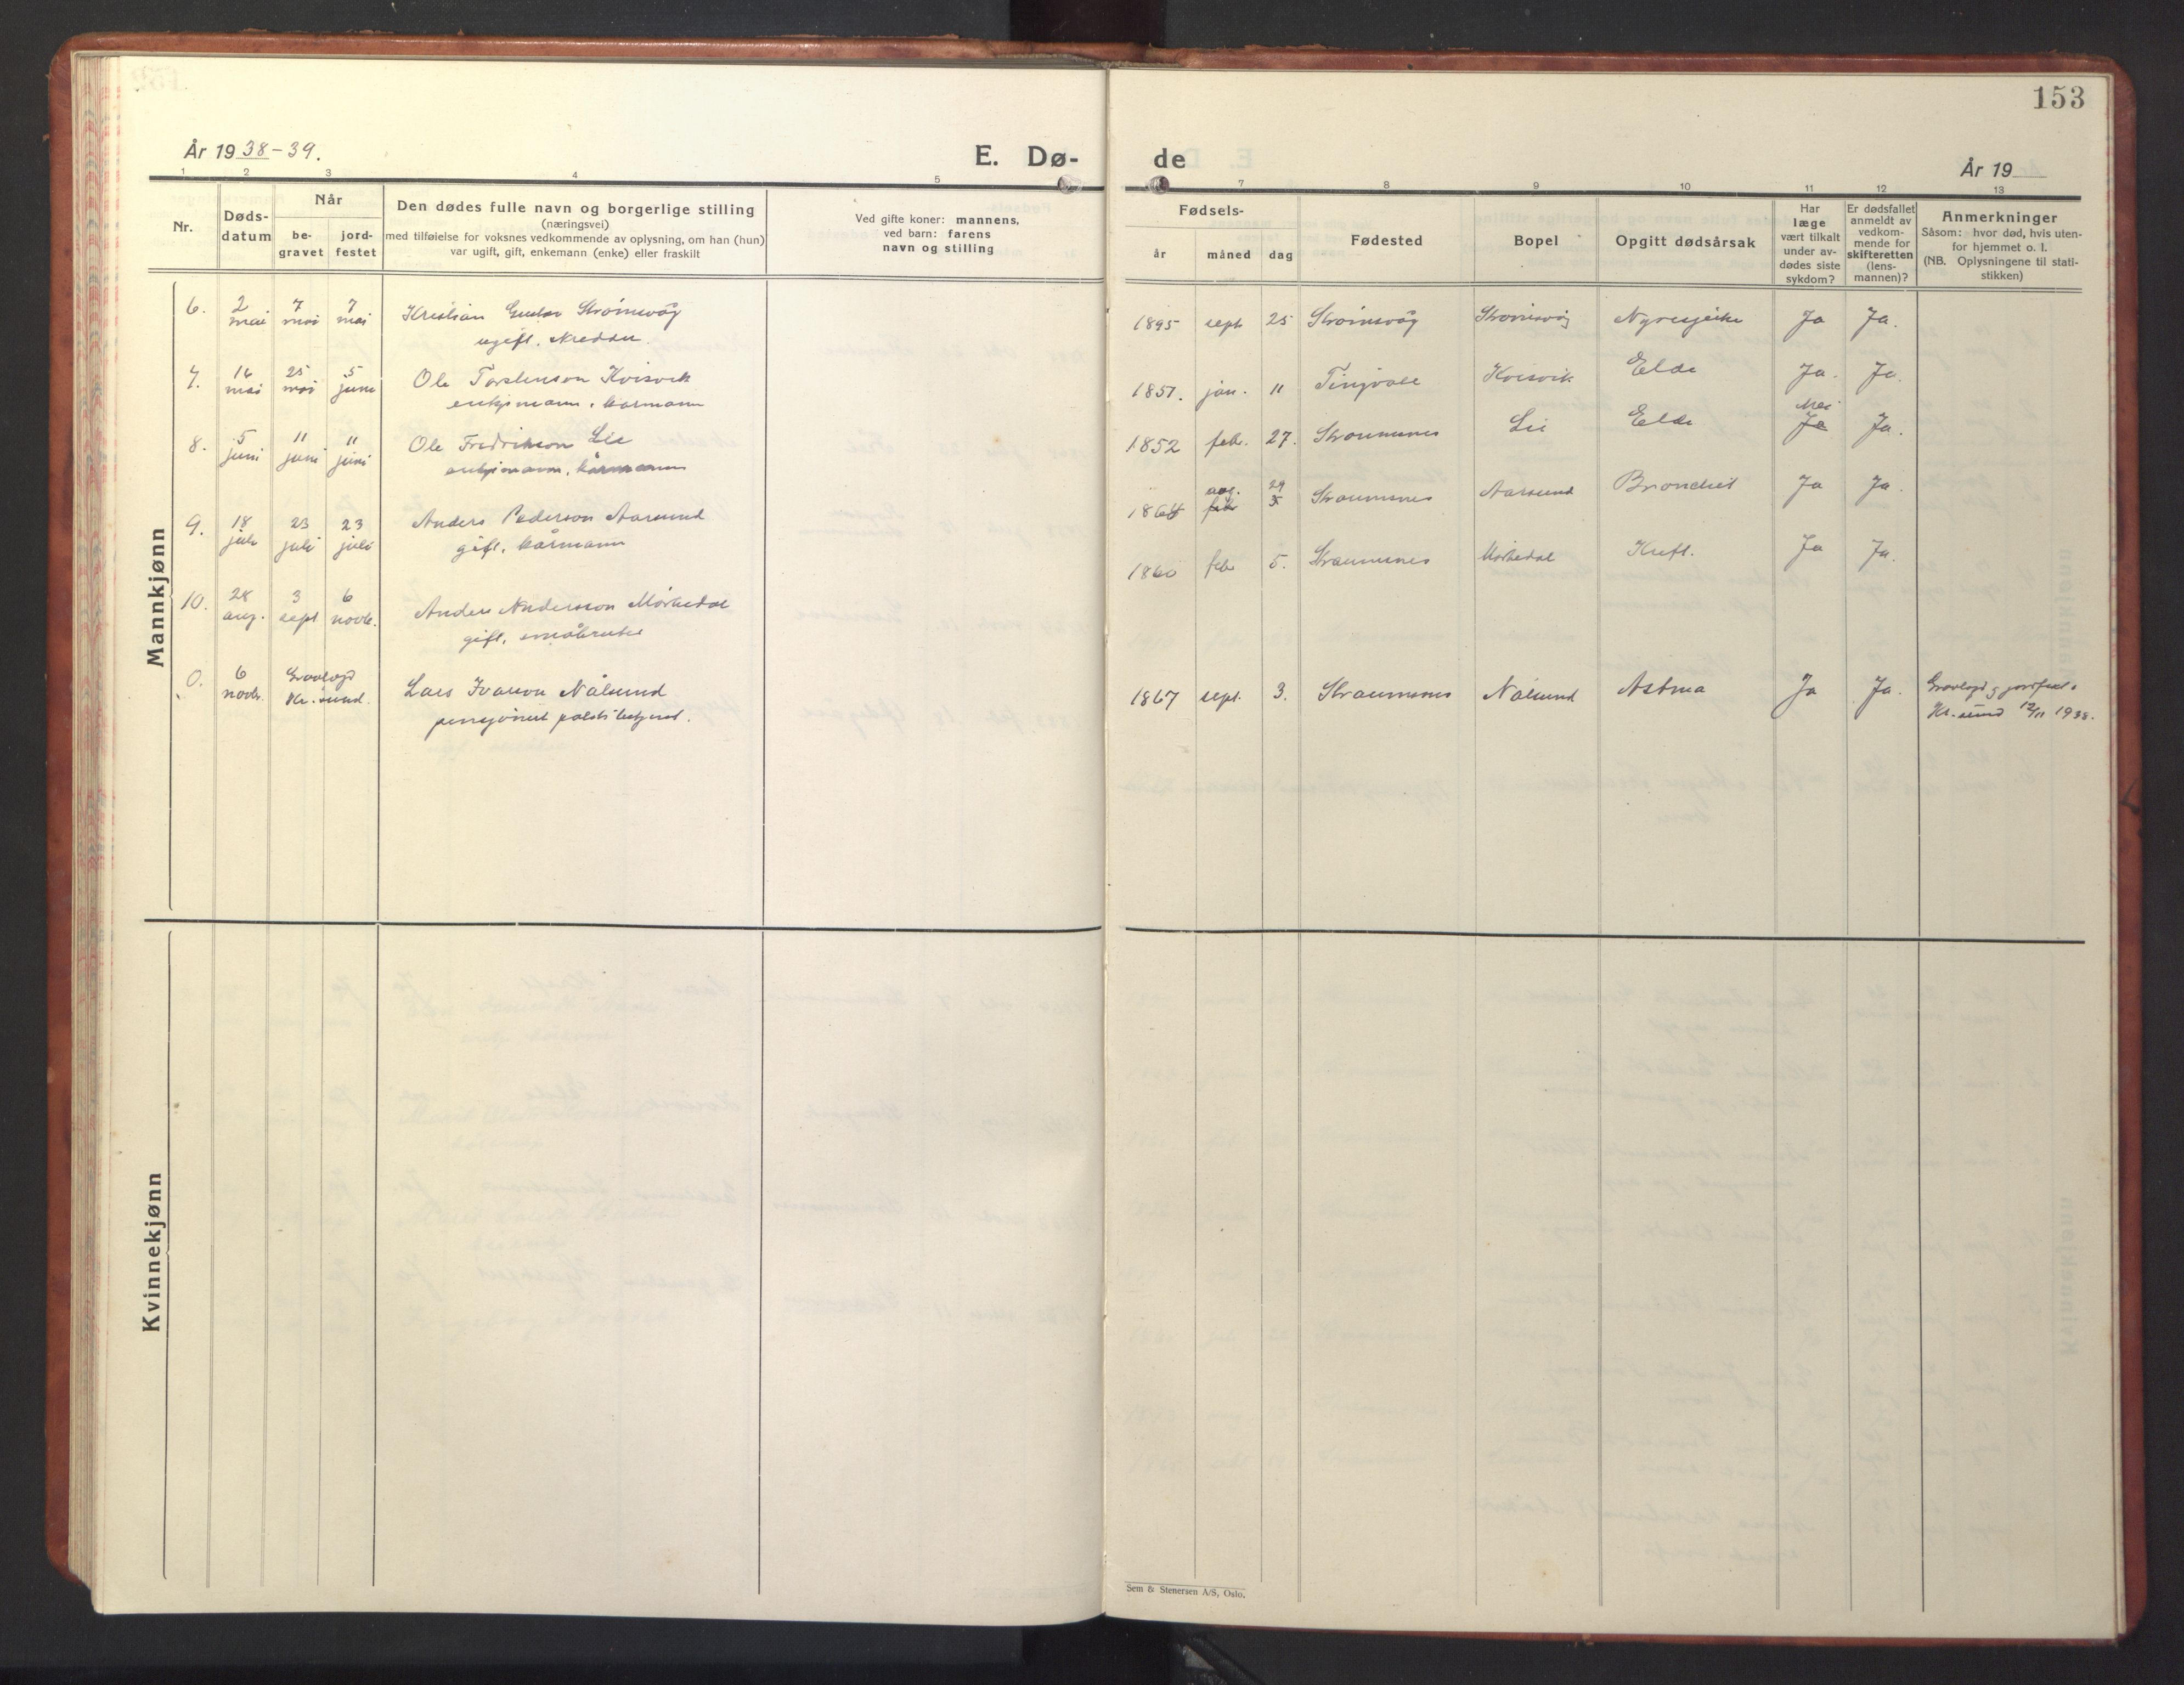 153
År 1938-39.
E. Dø-
de
År 19
1 2 3 4 5 7 8 9 10 11 12 13
Nr.
Døds-
datum
Når
be-
gravet
jord-
festet
Den dødes fulle navn og borgerlige stilling
(næringsvei)
med tilføielse for voksnes vedkommende av oplysning, om han (hun)
var ugift, gift, enkemann (enke) eller fraskilt
Ved gifte koner: mannens,
ved barn: farens
navn og stilling
Fødsels-
år måned dag
Fødested
Bopel
Opgitt dødsårsak
Har
læge
vært tilkalt
under av-
dødes siste
sykdom?
Er dødsfallet
anmeldt av
vedkom-
mende for
skifteretten
(lens-
mannen)?
Anmerkninger
Såsom: hvor død, hvis uten-
for hjemmet o. l.
(NB. Oplysningene til stati-
stikken)
Mannkjønn
6. 2 mai 7 mai 7 mai Kristian Gustav Strømsvåg
ugift.
1895 sept 25 Strømsvåg Strømsvåg Nyresyke Ja Ja.
7. 16 mai 25 mai 5 juni Ole Torstenson Kvisvik
enkjemann, kårmann
1851. jan. 11 Tingvoll Kvisvik Elde Ja. Ja.
8. 5 juni 11 juni 11 juni Ole Fredrikson Lie
enkjemann, kårmann
1852 feb. 27. Straumsnes Lie Elde Nei Ja Ja.
9. 18 juli 23 juli 23 juli Anders Pederson Aarsund
gift, kårmann
aug. 29
1864 feb 5 Straumsnes Aarsund Bronchit Ja Ja.
10. 28 aug. 3 sept 6 novbr. Anders Andersson Mørkedal
gift, småbruker
1860 feb 5. Straumsnes Mørkedal Kreft. Ja Ja.
0. 6 novbr. Gravlagd Kr.sund. Lars Ivarson Nålsund
pensjonert politibetjent.
1867 sept. 3. Straumsnes Nålsund Astma Ja Ja. Gravlagd og jordfest i
Kr.sund 12/11 1938.
Kvinnekjønn
Sem & Stenersen A/S, Oslo.